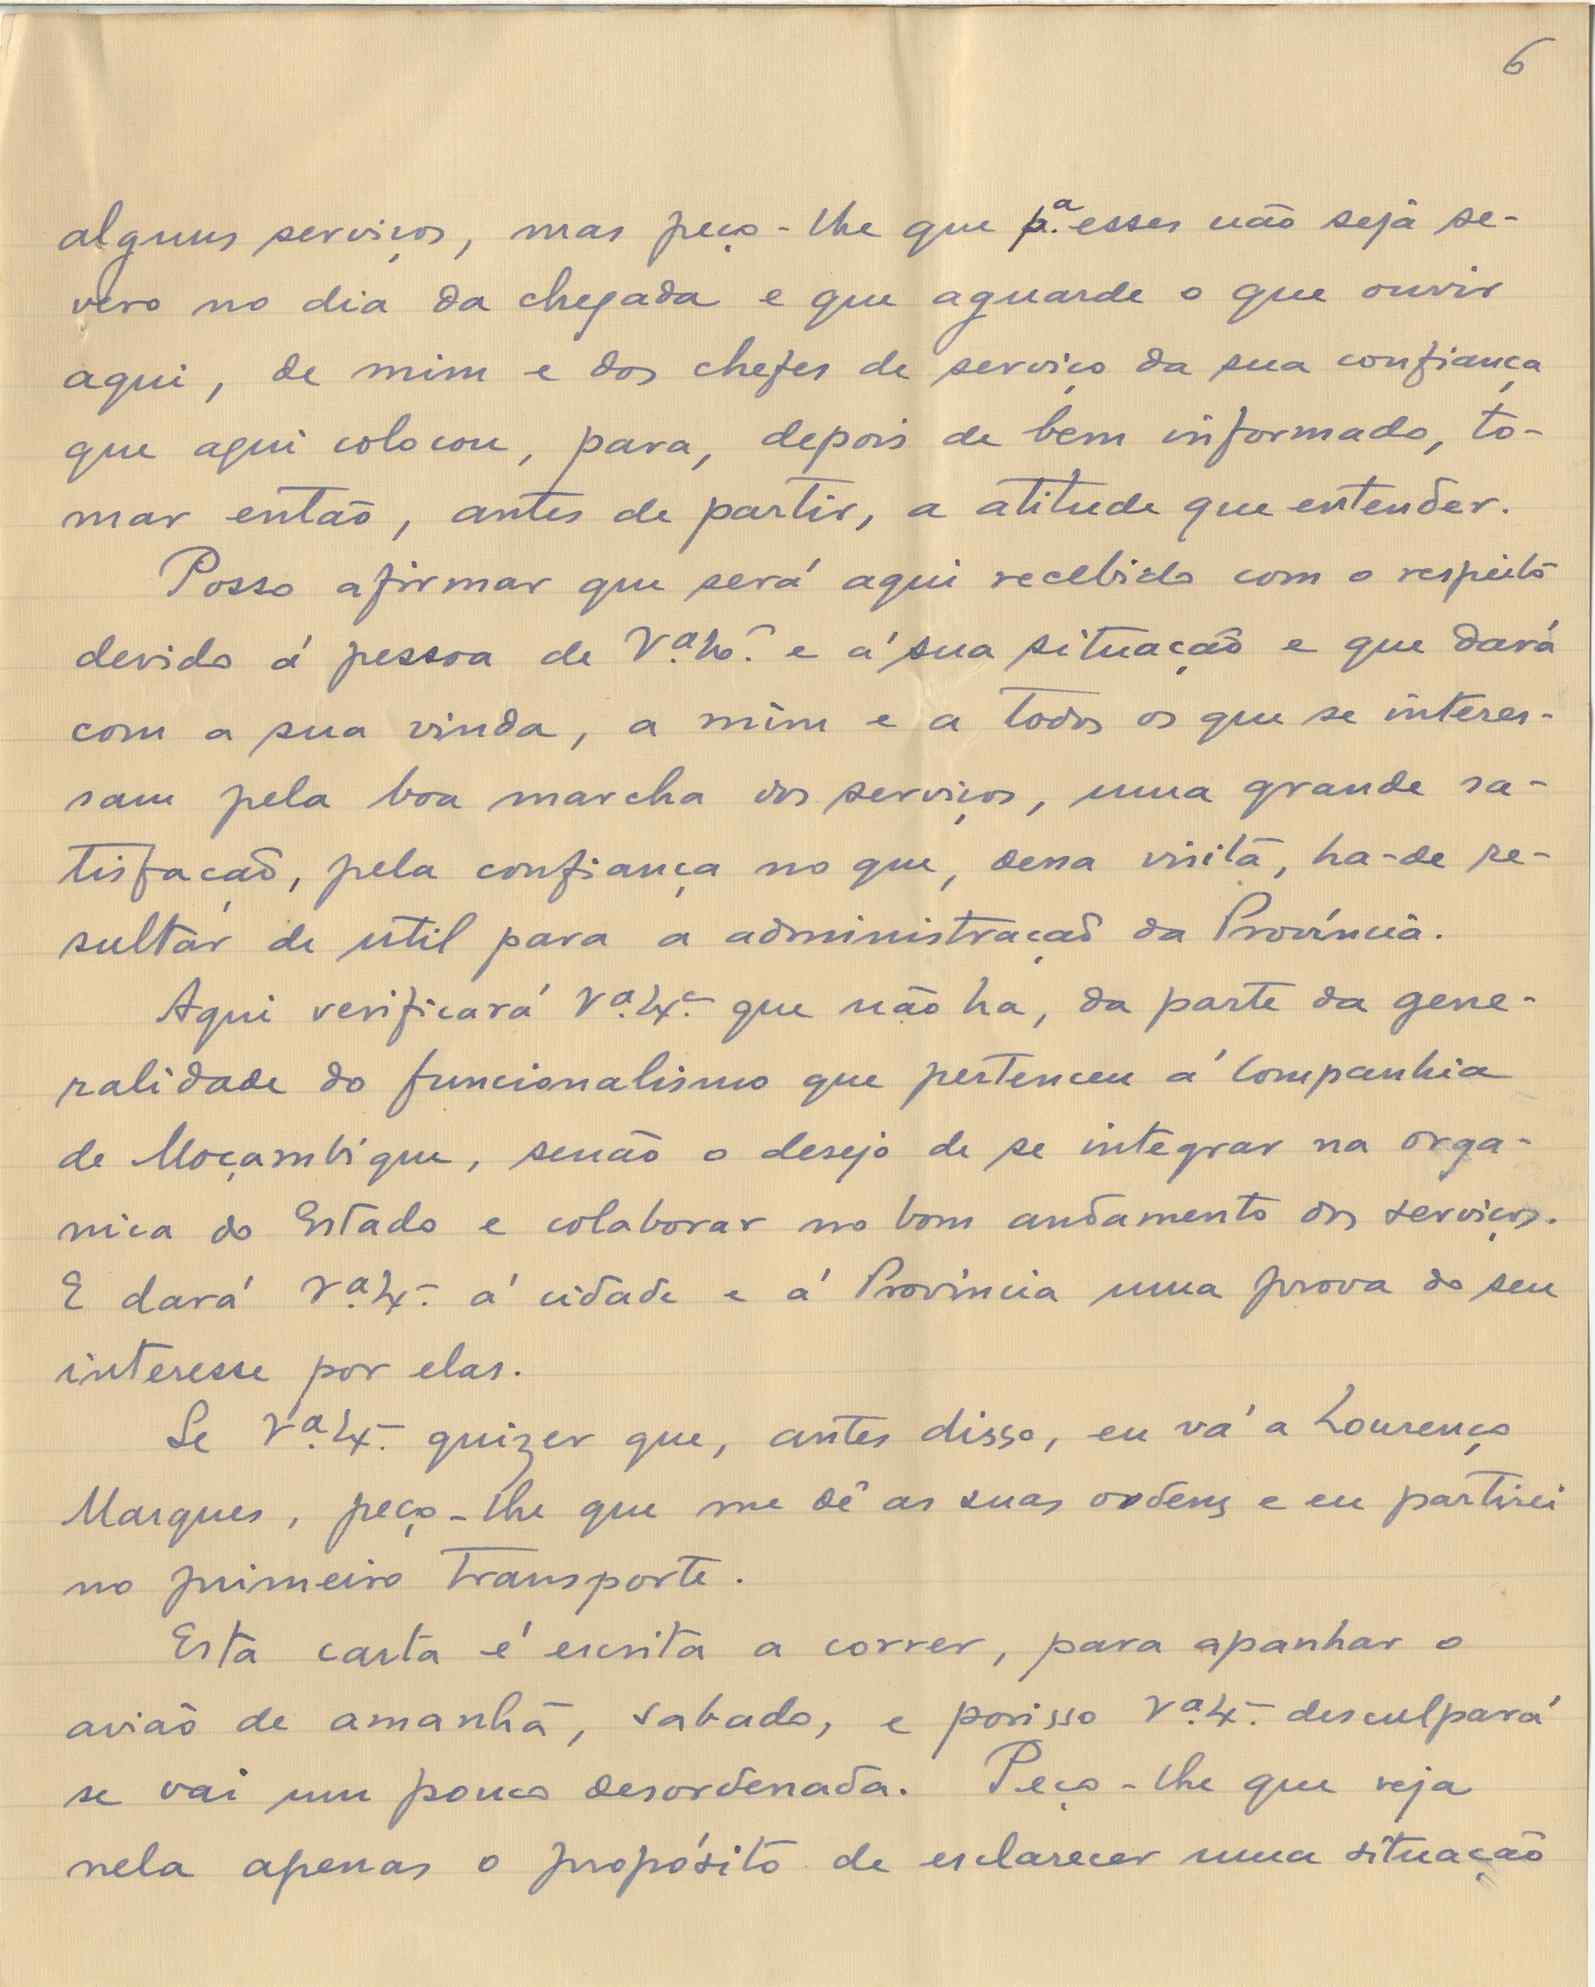 6
alguns serviços, mas peço-lhe que p.ª esses não seja se-
vero no dia da chegada e que aguarde o que ouvir
aqui, de mim e dos chefes de serviço da sua confiança
que aqui colocou, para, depois de bem informado, to-
mar então, antes de partir, a atitude que entender.
Posso afirmar que será aqui recebido com o respeito
devido á pessoa de V.ª Ex.ª e á sua situação e que dará
com a sua vinda, a mim e a todos os que se interes-
sam pela boa marcha dos serviços, uma grande sa-
tisfação, pela confiança no que, dessa visita, ha-de re-
sultar de util para a administração da Província.
Aqui verificará V.ª Ex.ª que não ha, da parte da gene-
ralidade do funcionalismo que pertenceu á Companhia
de Moçambique, senão o desejo de se integrar na orga-
nica do Estado e colaborar no bom andamento dos serviços.
E dará V.ª Ex.ª á cidade e á Província uma prova do seu
interesse por elas.
Se V.ª Ex.ª quizer que, antes disso, eu vá a Lourenço
Marques, peço-lhe que me dê as suas ordens e eu partirei
no primeiro transporte.
Esta carta é escrita a correr, para apanhar o
avião de amanhã, sabado, e porisso V.ª Ex.ª desculpará
se vai um pouco desordenada. Peço-lhe que veja
nela apenas o propósito de esclarecer uma situação